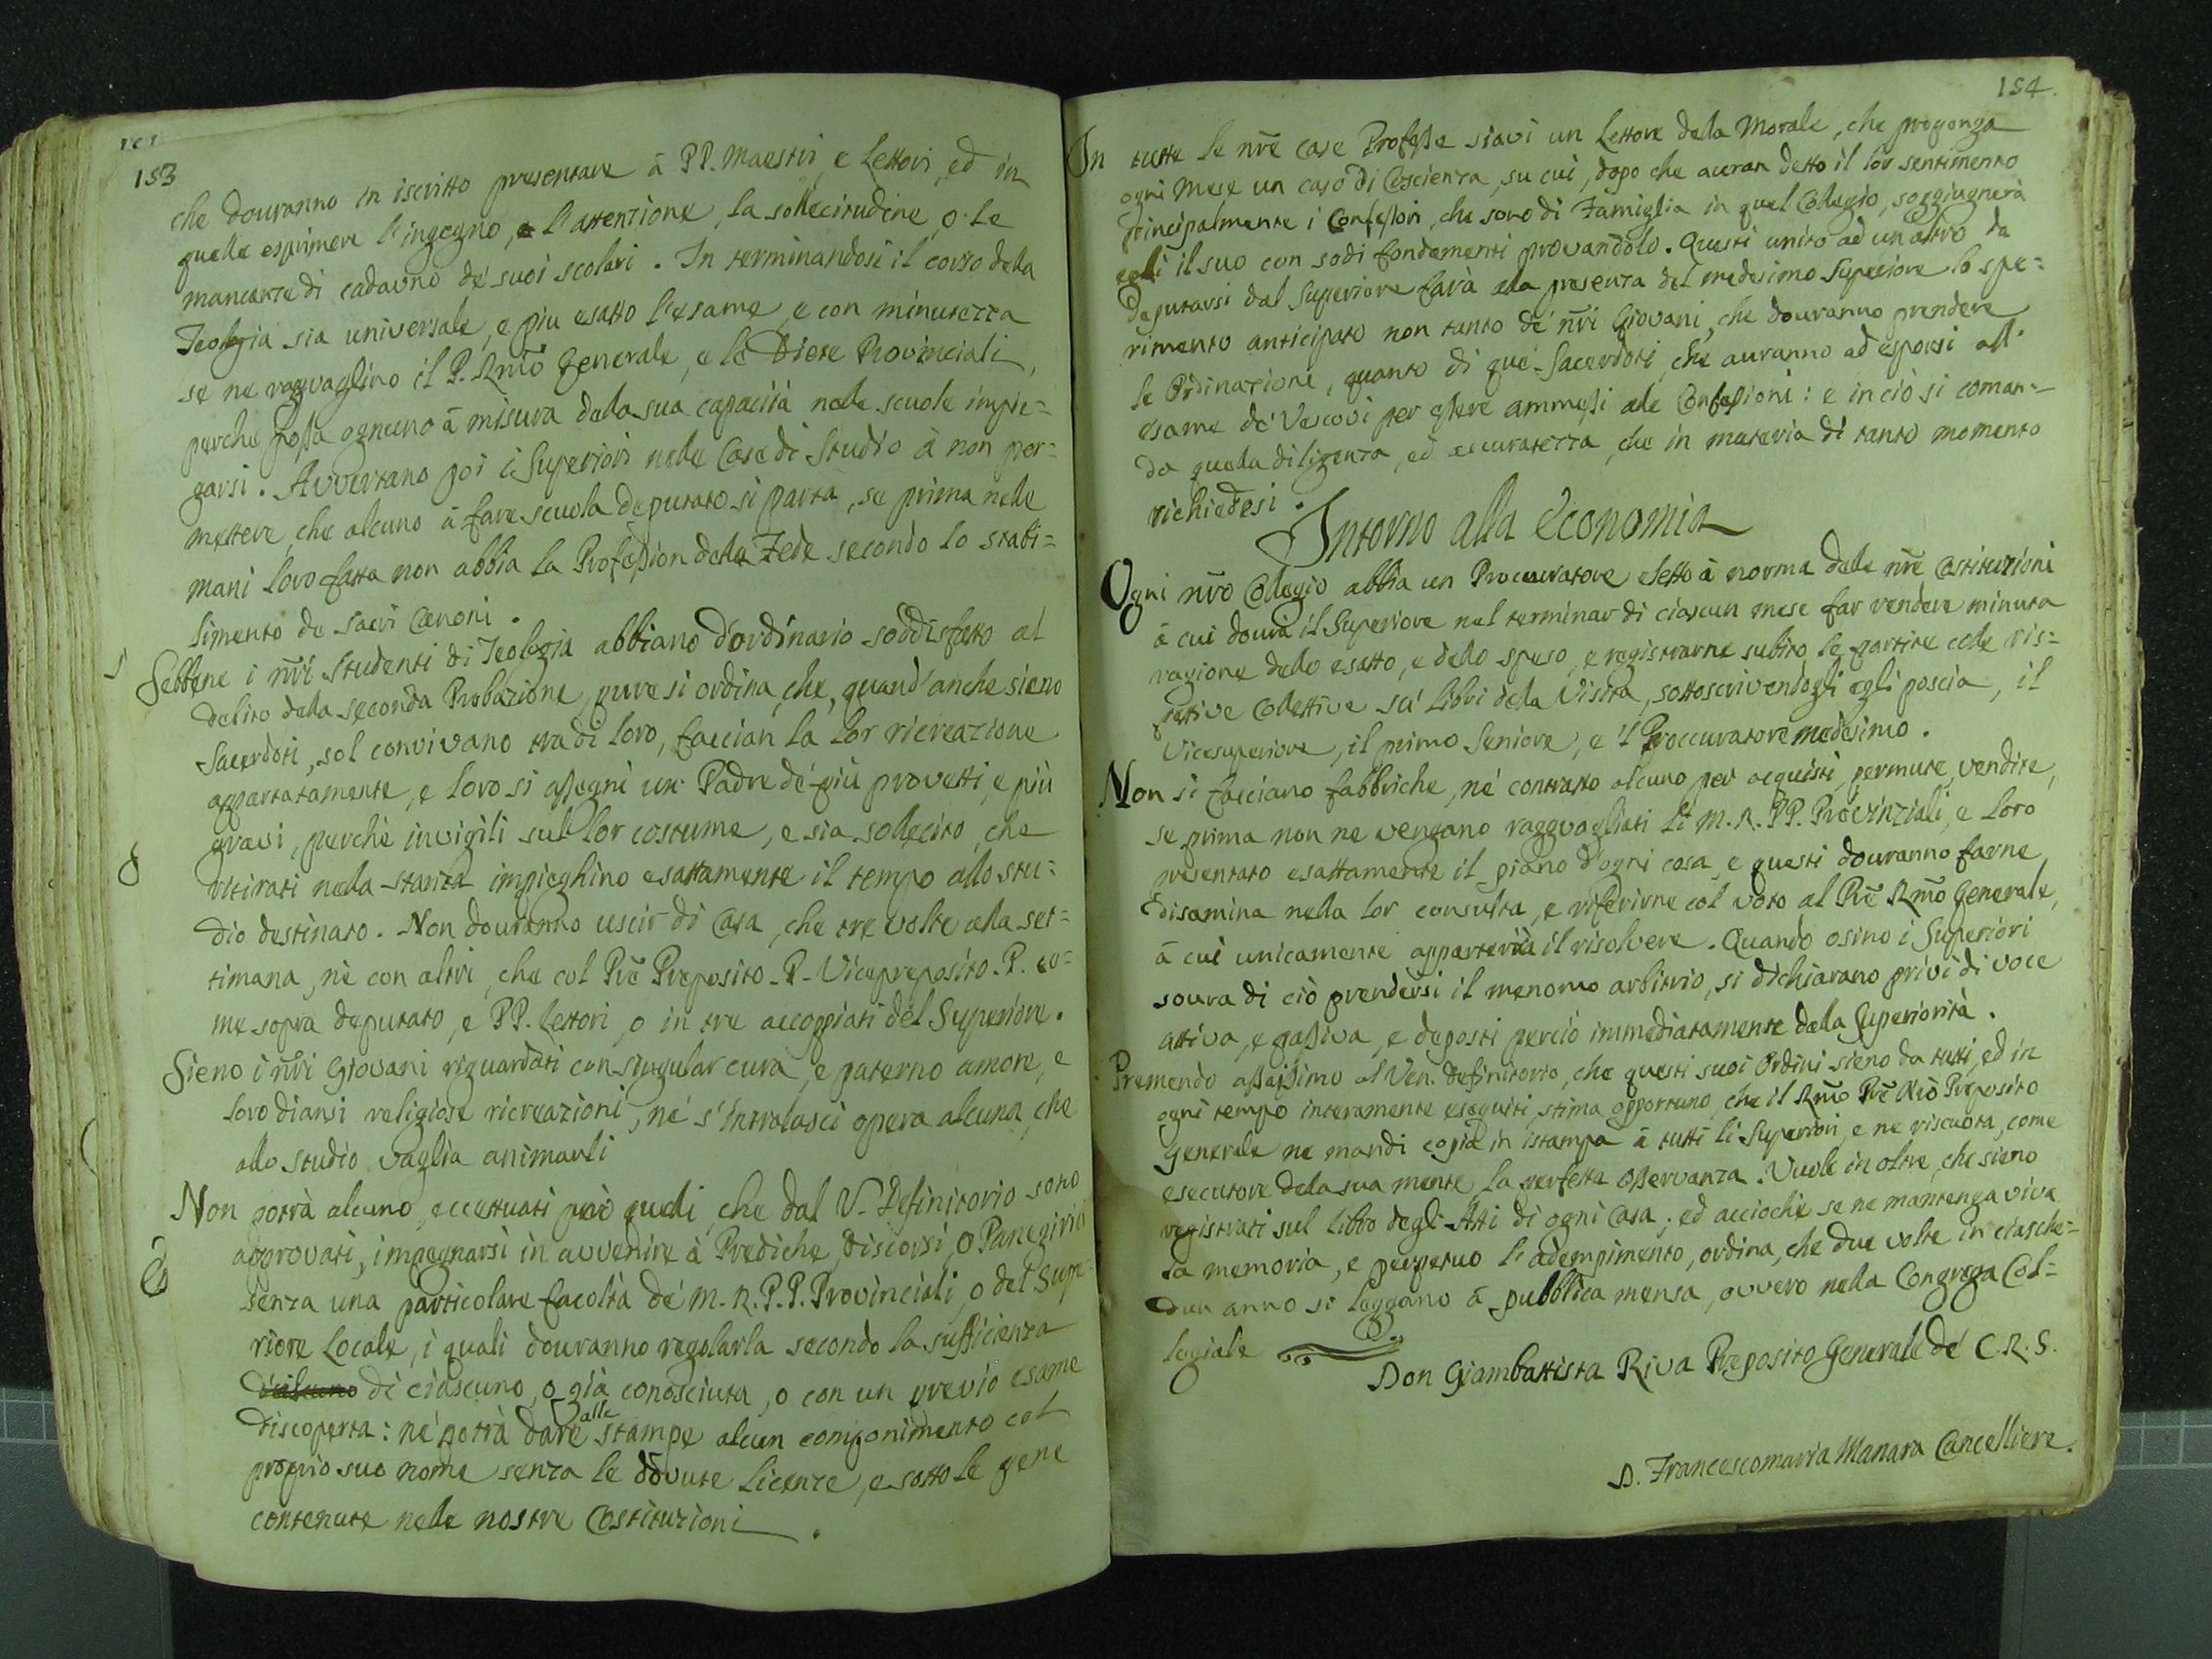 153
che douranno in iscritto presentare à PP. Maestri, e Lettori, ed in
quelle esprimere l'ingegno, e l'attenzione, la sollecitudine, o le
mancanze di cadauno de' suoi scolari. In terminandosi il corso della
Teologia sia universale, e piu esatto l'esame, e con minutezza
se ne ragguaglino il P. Rm̃o Generale, e le Diete Provinciali,
perche possa ognuno à misura della sua capacità nelle scuole impie=
garsi. Avvertano poi i Superiori nelle Case di Studio à non per=
mettere, che alcuno à fare scuola deputato si parta, se prima nelle
mani loro fatta non abbia la Profession della Fede secondo lo stabi=
limento de sacri Canoni.
Sebbene i nr̃i Studenti di Teologia abbiano d'ordinario soddisfatto al
debito della seconda Probazione, pure si ordina, che, quand'anche sieno
Sacerdoti, sol convivano tra di loro, faccian la lor ricreazione
appartatamente, e loro si assegni un Padre de' più provetti, e più
gravi, perchè invigili sul lor costume, e sia sollecito, che
ritirati nella stanza impieghino esattamente il tempo allo stu=
dio destinato. Non douranno uscir di Casa, che tre volte alla set=
timana, nè con altri, che col Pr̃e Preposito. P. Vicepreposito. P. co=
me sopra deputato, e PP. Lettori, o in tre accoppiati del Superiore.
Sieno i nr̃i Giovani riguardati con singular cura, e paterno amore, e
loro diansi religiose ricreazioni, né s'intralasci opera alcuna, che
allo studio vaglia animarli
Non potrà alcuno, eccettuati però quelli, che dal V. Definitorio sono
approvati, impegnarsi in avvenire à Prediche, discorsi, o Panegirici
senza una particolare facoltà de' M. R. P. P. Provinciali, o del Supe=
riore Locale, i quali douranno regolarla secondo la sufficienza
di ciascuno, o già conosciuta, o con un previo esame
discoperta: né potrà dare alle stampe alcun componimento col
proprio suo nome senza le dovute licenze, e sotto le pene
contenute nelle nostre Costituzioni.
154.
In tutte le nr̃e Case Professe siavi un Lettore della Morale, che proponga
ogni Mese un caso di Coscienza, su cui, dopo che auran detto il lor sentimento
principalmente i Confessori, che sono di Famiglia in quel Collegio, soggiugnerà
egli il suo con sodi fondamenti provandolo. Questi unito ad un altro da
deputarsi dal Superiore farà alla presenza del medesimo Superiore lo spe=
rimento anticipato non tanto de' nr̃i Giovani, che douranno prendere
le Ordinazioni, quanto di que' Sacerdoti, che auranno ad esporsi all'
esame de' Vescovi per essere ammessi alle Confessioni: e in ciò si coman=
da quella diligenza, ed accuratezza, che in materia di tanto momento
richiedesi.
Intorno alla Economia
Ogni nr̃o Collegio abbia un Proccuratore eletto à norma delle nr̃e Costituzioni
à cui dourà il Superiore nel terminar di ciascun mese far rendere minuta
ragione dello esatto, e dello speso, e registrarne subito le partite colle ris=
pettive Collettive su' Libri della Visita, sottoscrivendogli egli poscia, il
Vicesuperiore, il primo Seniore, e 'l Proccuratore medesimo.
Non si facciano fabbriche, né contratto alcuno per acquisti, permute, vendite,
se prima non ne vengano ragguagliati li M. R. PP. Provinziali, e loro
presentato esattamente il piano d'ogni cosa, e questi douranno farne
disamina nella lor consulta, e riferirne col voto al Pr̃e Rm̃o Generale,
à cui unicamente apparterrà il risolvere. Quando osino i Superiori
soura di ciò prendersi il menomo arbitrio, si dichiarano privi di voce
attiva, e passiva, e deposti perciò immediatamente dalla Superiorità.
Premendo assaissimo al Ven. Definitorio, che questi suoi Ordini sieno da tutti, ed in
ogni tempo interamente eseguiti, stima opportuno, che il Rm̃o Pr̃e Nr̃o Preposito
Generale ne mandi copia in istampa à tutti li Superiori, e ne riscuota, come
esecutore della sua mente, la perfetta osservanza. Vuole in oltre, che sieno
registrati sul Libro degli Atti di ogni Casa; ed acciochè se ne mantenga viva
la memoria, e perpetuo l'adempimento, ordina, che due volte in ciasche=
dun anno si leggano à pubblica mensa, ovvero nella Congrega Col=
legiale
Don Giambattista Riva Preposito Generale de' C. R. S.
D. Francescomaria Manara Cancelliere.